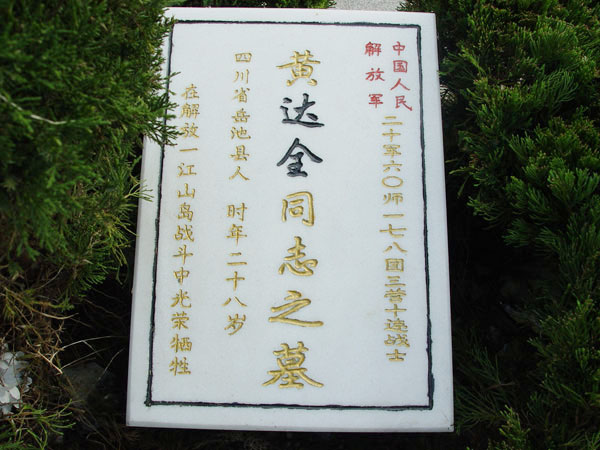 中国人民
解放军
二十军六〇师一七八团三营十连战士
黄达全同志之墓
四川省岳池县人 时年二十八岁
在解放一江山岛战斗中光荣牺牲